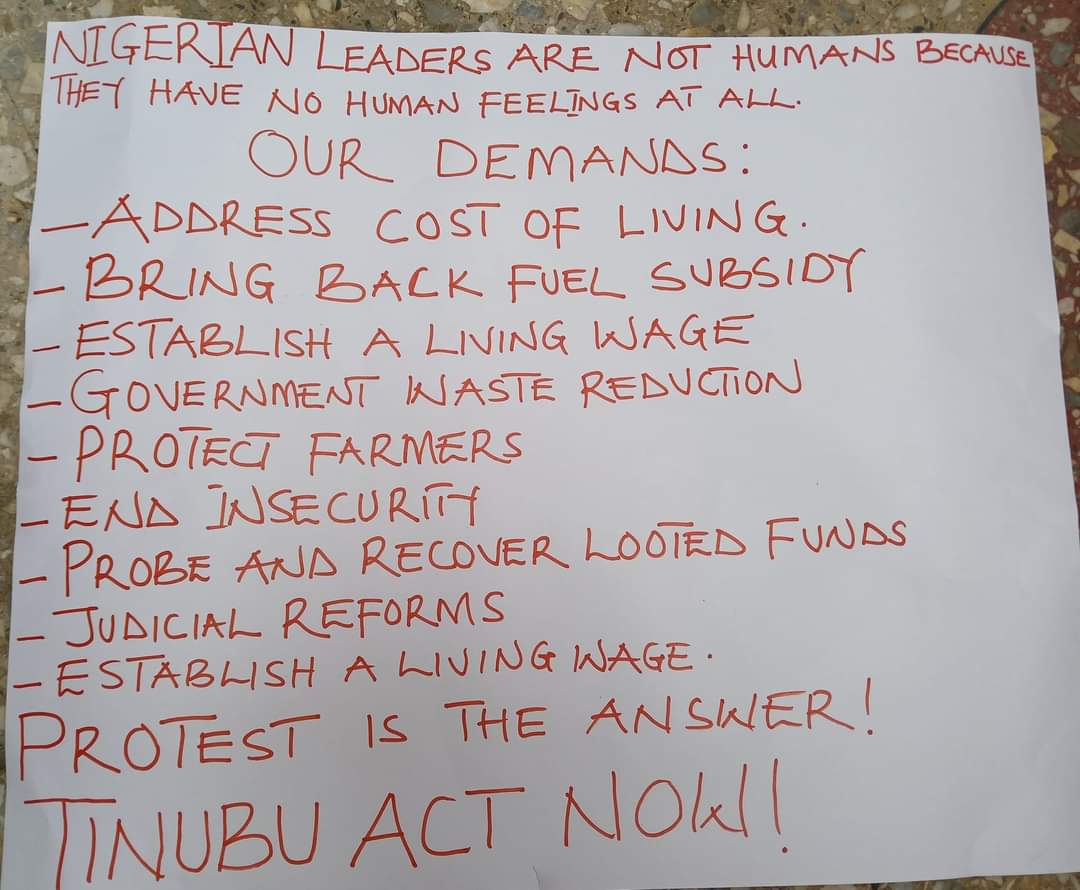 NIGERIAN LEADERS ARE NOT HUMANS BECAUSE
THEY HAVE NO HUMAN FEELINGS AT ALL.
OUR DEMANDS:
- ADDRESS COST OF LIVING.
- BRING BACK FUEL SUBSIDY
- ESTABLISH A LIVING WAGE
- GOVERNMENT WASTE REDUCTION
- PROTECT FARMERS
- END INSECURITY
- PROBE AND RECOVER LOOTED FUNDS
- JUDICIAL REFORMS
- ESTABLISH A LIVING WAGE.
PROTEST IS THE ANSWER!
TINUBU ACT NOW!